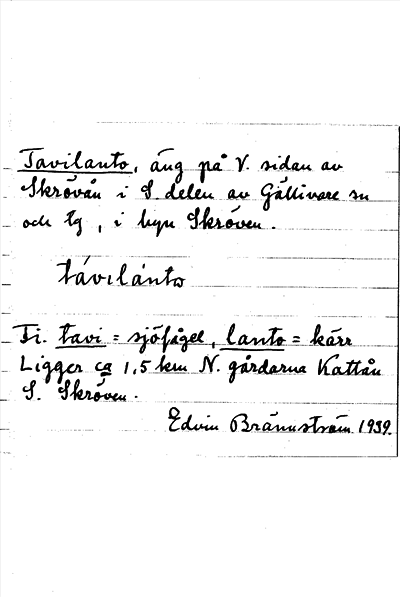 Tavilanto, äng på V. sidan av
Skrövån i S. delen av Gällivare sn
och tg, i byn Skröven.
távilántω
Fi. tavi = sjöfågel, lanto = kärr
Ligger ca 1,5 km N. gårdarna Kattån
S. Skröven.
Edvin Brännström 1939.